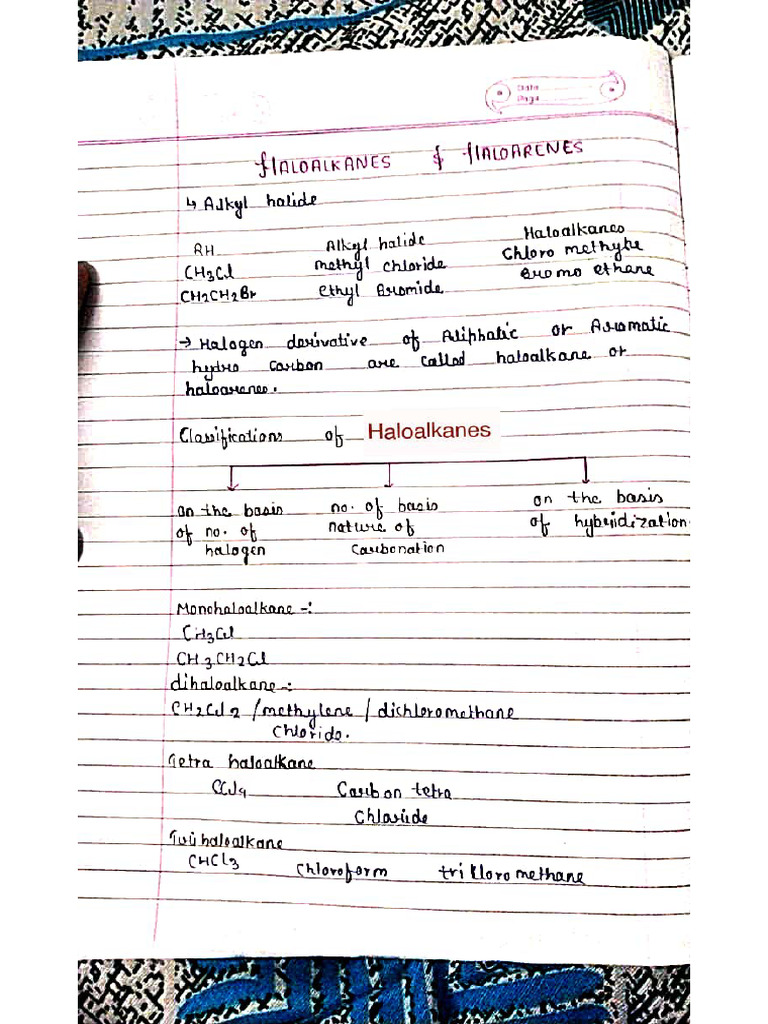 Date
Page
HALOALKANES & HALOARENES
↳ Alkyl halide
RH Alkyl halide Haloalkanes
CH3Cl methyl chloride Chloro methybe
CH2CH2Br ethyl Bromide Bromo ethane
→ Halogen derivative of Aliphatic or Aromatic
hydro carbon are called haloalkane or
haloarenes.
Classifications of Haloalkanes
on the basis no. of basis on the basis
of no. of nature of of hybridization.
halogen Carbonation
Monohaloalkane -:
CH3Cl
CH3CH2Cl
dihaloalkane -:
CH2Cl2 / methylene / dichloromethane
Chloride.
Tetra haloalkane
CCl4 Carbon tetra
Chloride
Trihaloalkane
CHCl3 Chloroform tri kloro methane